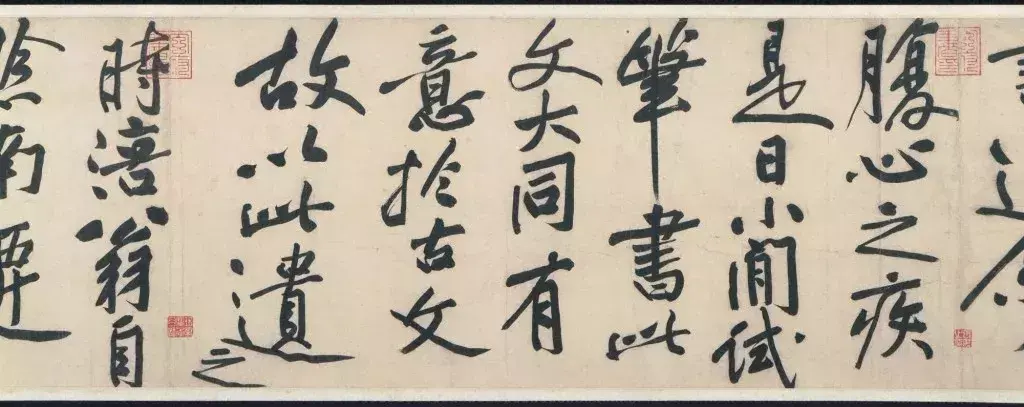 腹心之疾
是日小閒試
筆書此
文大同有
意於古文
故以此遺之
時涪翁自
南遷